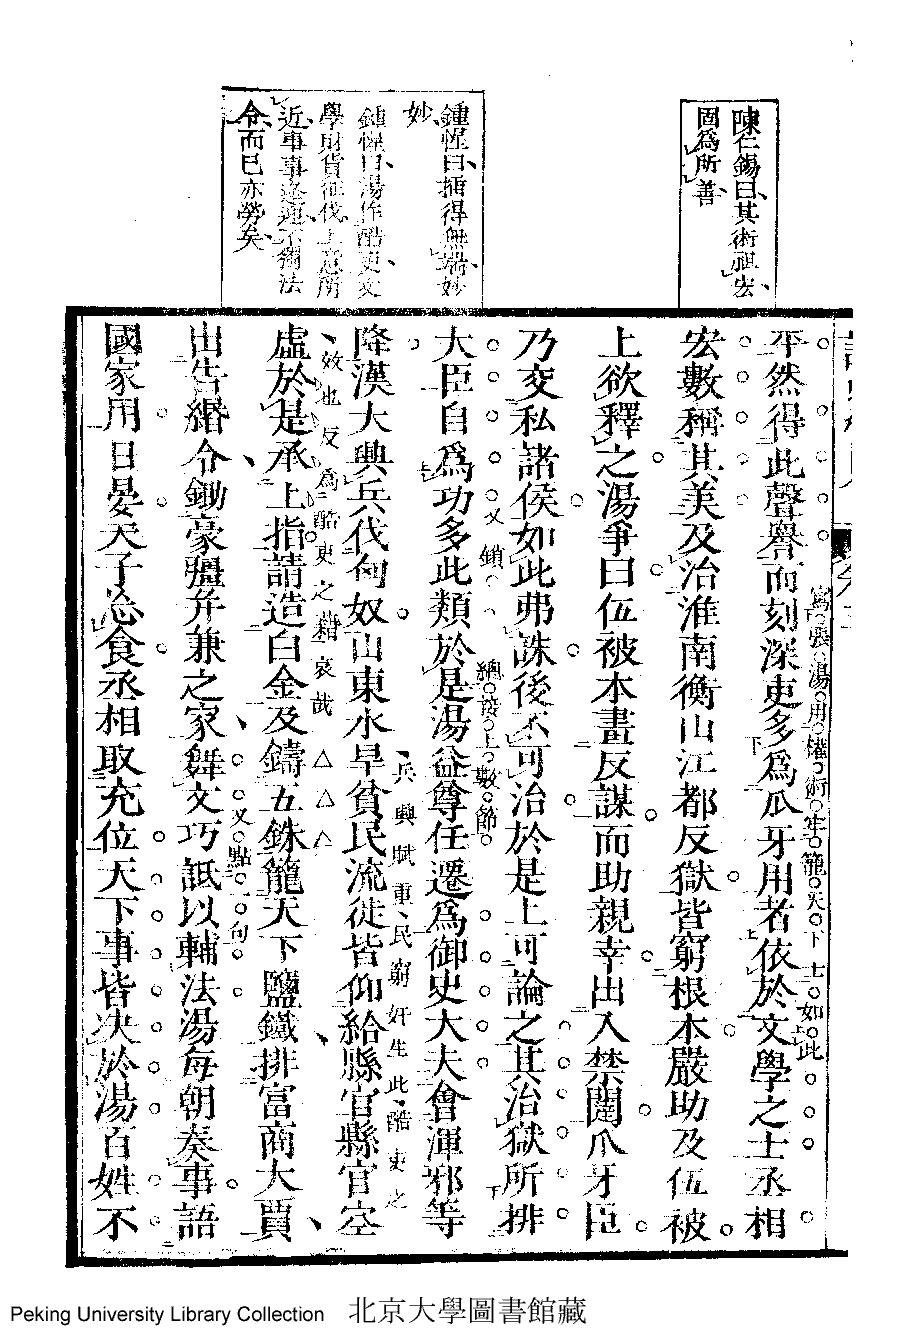 陳仁錫曰其術祖宏
圖為所善
鍾惺曰插得無端妙
妙
鍾惺曰湯作酷吏文
學財貨征伐上意所
近事事逢迎不獨法
令而已亦勞矣
平然得此聲譽而刻深吏多爲爪牙用者依於文學之士丞相
寫張湯用權術牢籠天下士如此
宏數稱其美及治淮南衡山江都反獄皆窮根本嚴助及伍被
上欲釋之湯爭曰伍被本畫反謀而助親幸出入禁闥爪牙臣
乃交私諸侯如此弗誅後不可治於是上可論之其治獄所排
又鎖
總發上數節
大臣自爲功多此類於是湯益尊任遷爲御史大夫會渾邪等
兵興賦重民窮奸生此酷吏之
降漢大興兵伐匈奴山東水旱貧民流徙皆仰給縣官縣官空
效也反爲酷吏之藉哀哉
虛於是承上指請造白金及鑄五銖籠天下鹽鐵排富商大賈
出告緡令鋤豪彊并兼之家舞文巧詆以輔法湯每朝奏事語
又點句
國家用日晏天子忘食丞相取充位天下事皆决於湯百姓不
Peking University Library Collection 北京大學圖書館藏